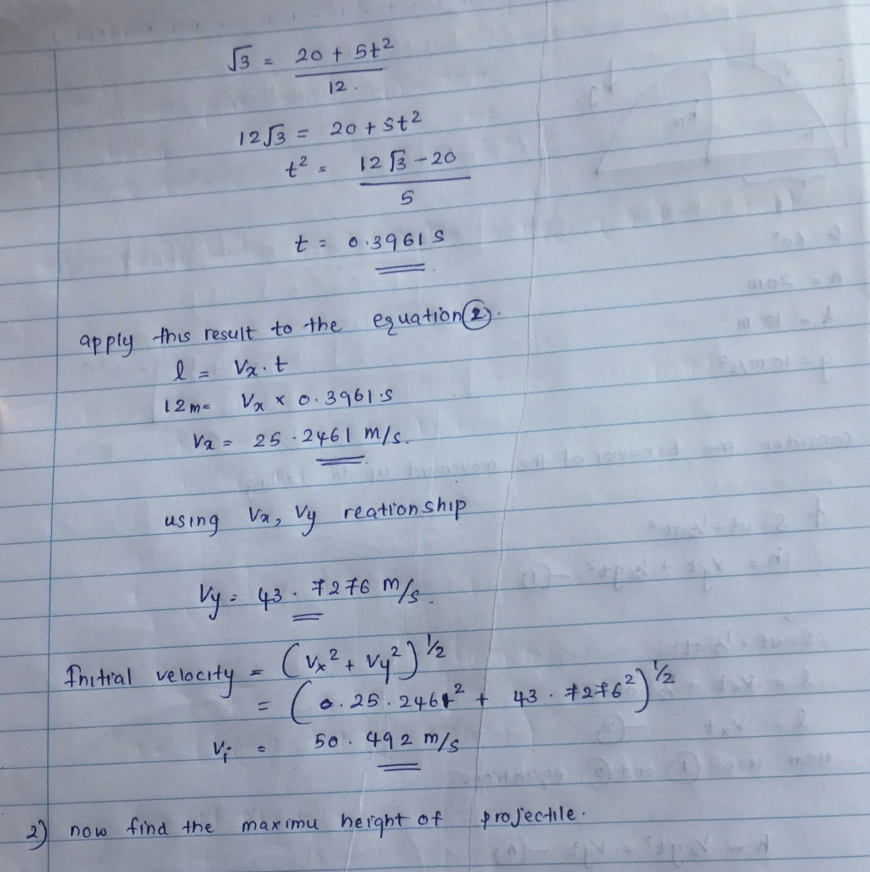 √3 = 20 + 5t²
12.
12√3 = 20 + 5t²
t² = 12√3 - 20
5
t = 0.3961 s
apply this result to the equation ②.
l = Vx . t
12m = Vx × 0.3961.s
Vx = 25.2461 m/s.
using Vx, Vy reationship
Vy = 43.7276 m/s.
Initial velocity = (Vx² + Vy²)^½
= (0.25.2461² + 43.7276²)^½
Vi = 50.492 m/s
2) now find the maximu height of projectile.